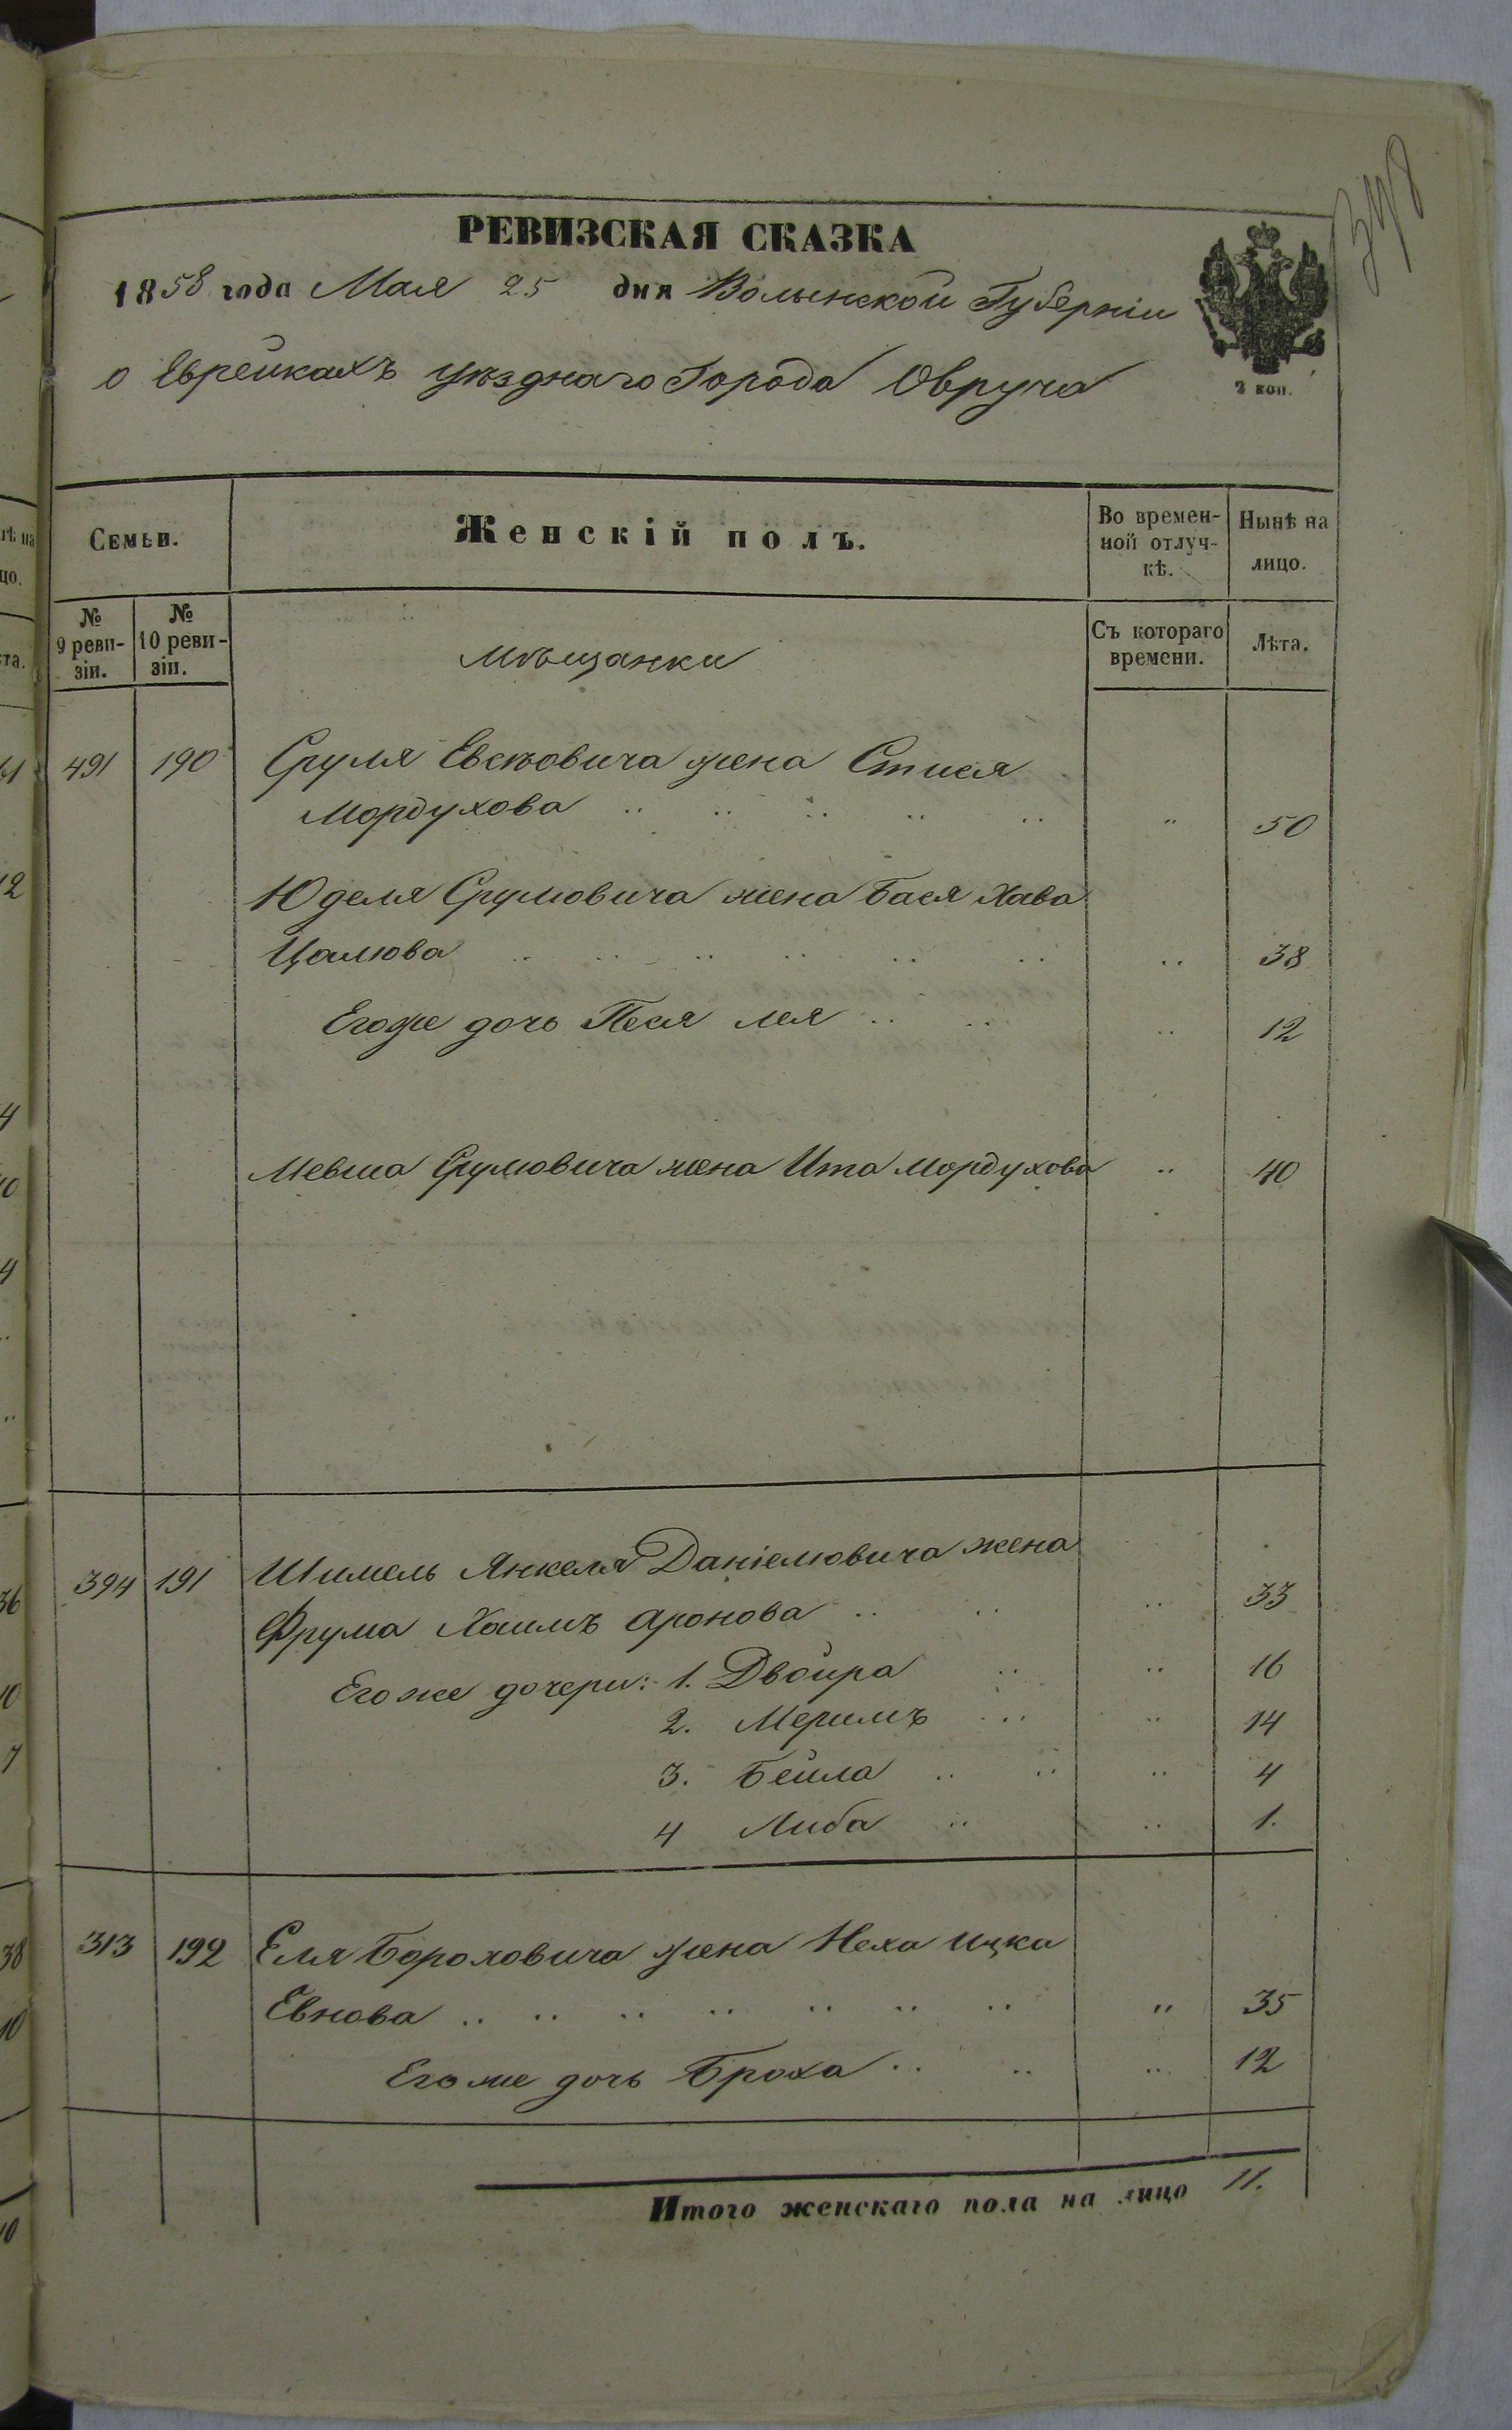 РЕВИЗСКАЯ СКАЗКА
1858 года Мая 25 дня Волынской Губерніи
о Еврейкахъ уѣзднаго Города Овруча
2 коп.
Семьи.
Женскій полъ.
Во времен-
ной отлуч-
кѣ.
Нынѣ на
лицо.
№
9 реви-
зіи.
№
10 реви-
зіи.
Мѣщанки
Съ котораго
времени.
Лѣта.
491 190 Сруля жена
Мордухова .. .. .. .. .. .. 50
Юделя Срулювича жена Бася Хава
Цалюва .. .. .. .. .. .. .. 38
Егоже дочь Песя Лея .. .. .. 12
Мевша Срулювича жена Ита Мордухова .. 40
394 191 Шимель Янкеля Даніелювича жена
Фрума Хаимъ Аронова .. .. .. 33
Его же дочери: 1. Двойра .. .. 16
2. Меримъ ... .. 14
3. Бейла .. .. .. 4
4 Либа .. .. 1.
313 192 Еля Бороховича жена Неха Ицка
Евнова .. .. .. .. .. .. .. .. 35
Егоже дочь Броха .. .. .. 12
Итого женскаго пола на лицо 11.